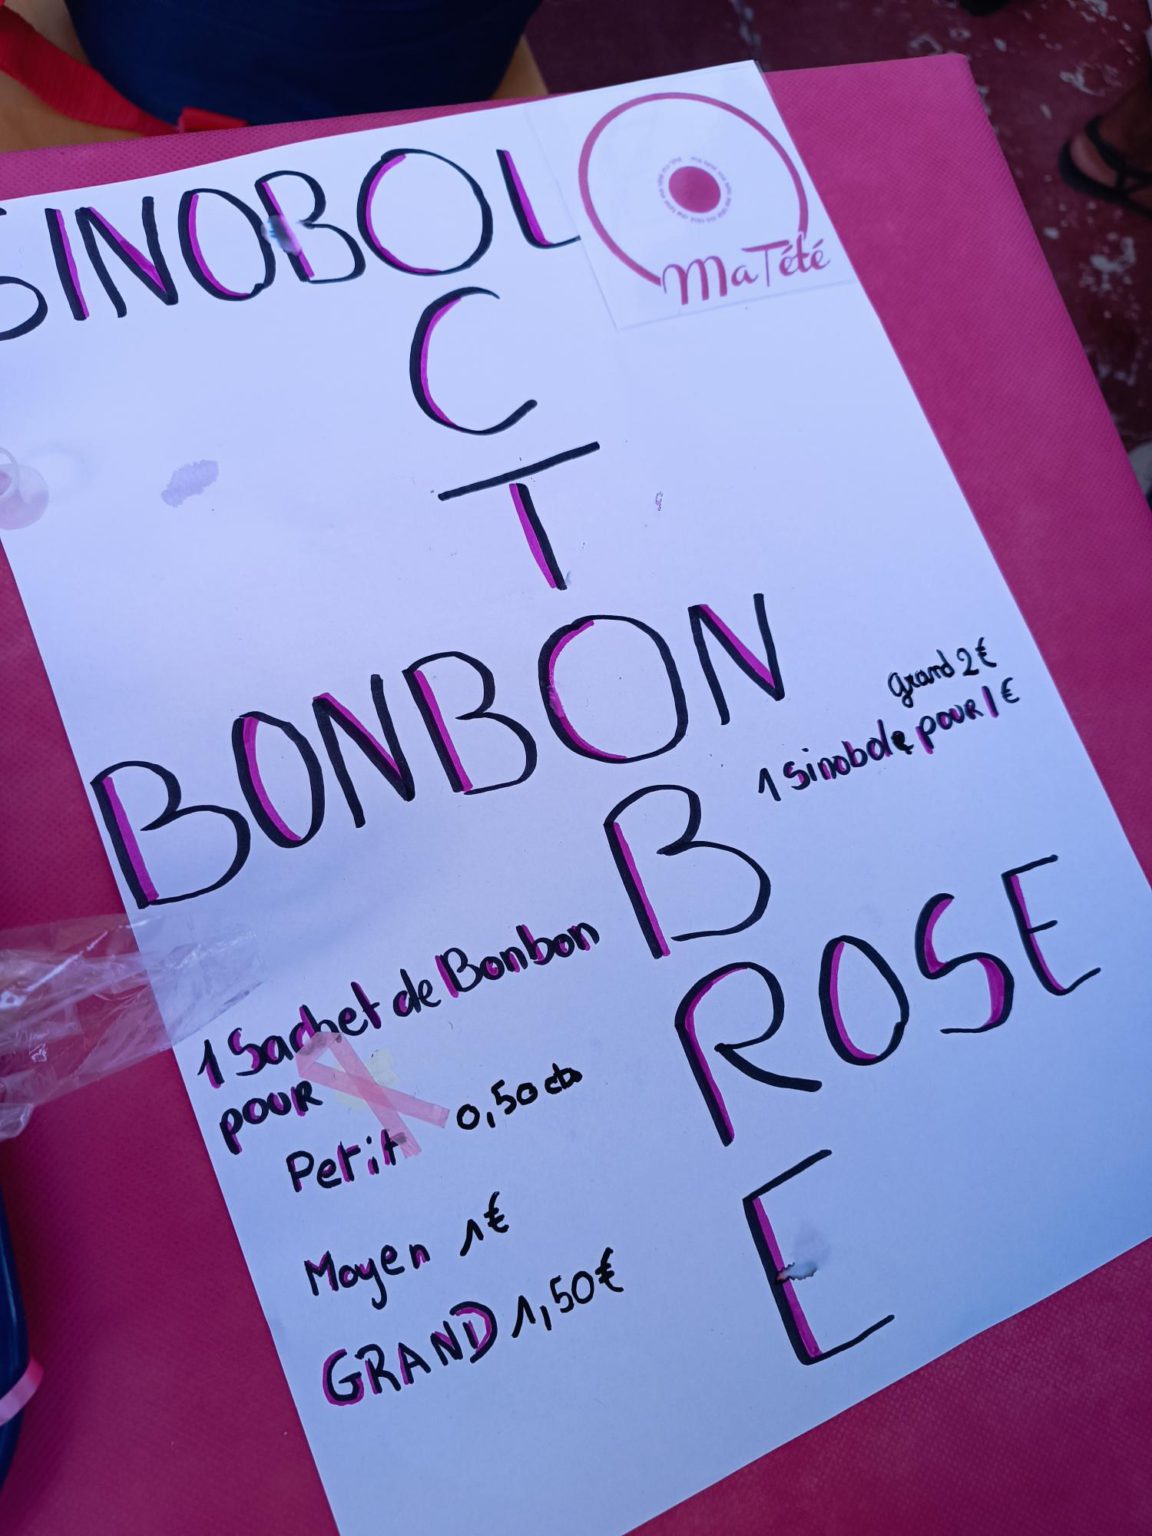 SINOBOL
MaTété
C
T
BONBON
grand 2€
1 Sinobole pour 1€
B
ROSE
E
1 Sachet de Bonbon
pour
Petit 0,50 cts
Moyen 1€
GRAND 1,50€